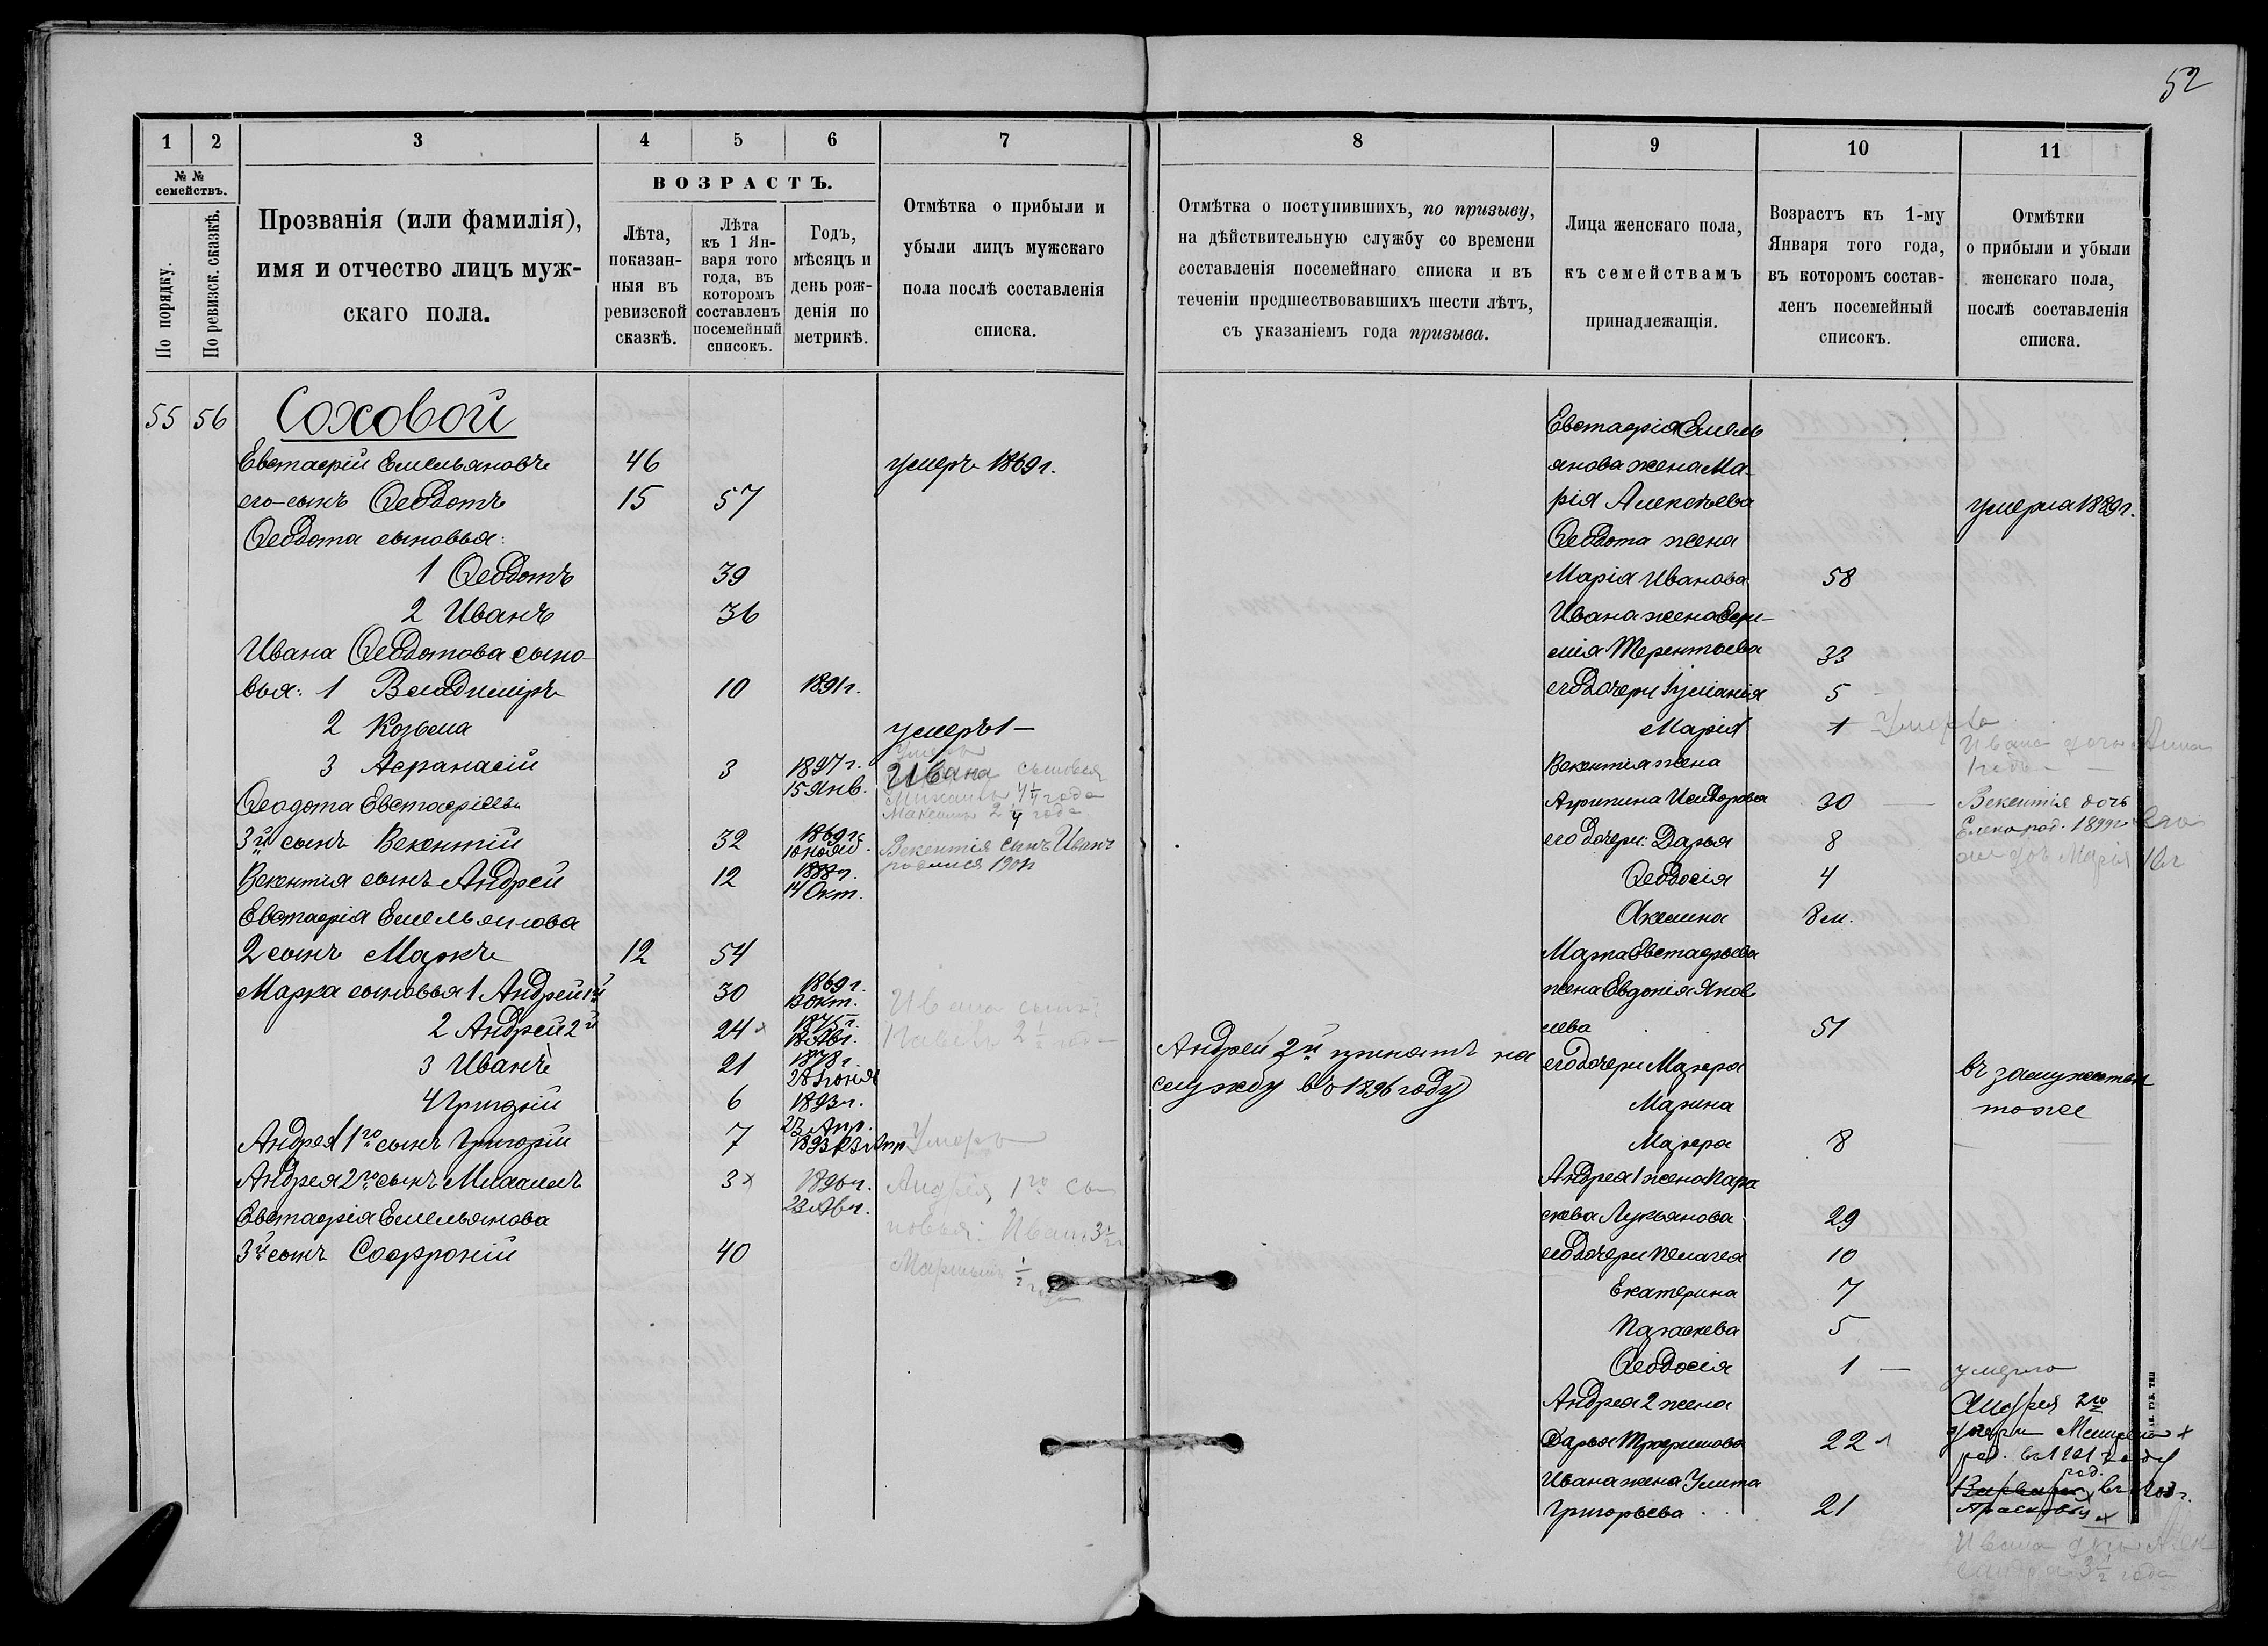 52
1 2 3 4 5 6 7
№ №
семействъ.
По порядку.
По ревизск. сказкѣ.
Прозванія (или фамилія),
имя и отчество лицъ муж-
скаго пола.
ВОЗРАСТЪ.
Лѣта,
показан-
ныя въ
ревизской
сказкѣ.
Лѣта
къ 1 Ян-
варя того
года, въ
которомъ
составленъ
посемейный
списокъ.
Годъ,
мѣсяцъ и
день рож-
денія по
метрикѣ.
Отмѣтка о прибыли и
убыли лицъ мужскаго
пола послѣ составленія
списка.
55 56 Соховой
Евстафій Емельяновъ 46 умеръ 1869 г.
его-сынъ Ѳеодотъ 15 57
Ѳеодота сыновья:
1 Ѳеодотъ 39
2 Иванъ 36
Ивана Ѳеодотова сыно-
вья: 1 Владиміръ 10 1891 г.
2 Козьма умеръ 1 —
3 Афанасій 3 1897 г.
15 Янв.
Умеръ
Ивана сыновья
Михаилъ 4 1/4 года
Максимъ 2 1/4 года
Ѳеодота Евстафіева
3й сынъ Векентій 32 1869 г.
10 нояб.
Векентія сынъ Иванъ
родился 190
Векентія сынъ Андрей 12 1888 г.
14 Окт.
Евстафія Емельянова
2 сынъ Маркъ 12 54
Марка сыновья 1 Андрей 1й 30 1869 г.
Окт.
Ивана сынъ:
2 Андрей 2й 24 x 1875 г.
Авг.
Павелъ 2 1/2 год
3 Иванъ 21 1878 г.
28 Іюня
4 6 1893 г.
23 Апр.
Андрея 1го сынъ Григорій 7 1893 23 Апр Умеръ
Андрея 2го сынъ Михаилъ 3 x 1896 г.
23 Авг.
Андрея 1го сы
новья: Иванъ 3 1/2
Мартынъ 1/2
года
Евстафія Емельянова
3й сынъ Софроній 40
8 9 10 11
Отмѣтка о поступившихъ, по призыву,
на дѣйствительную службу со времени
составленія посемейнаго списка и въ
теченіи предшествовавшихъ шести лѣтъ,
съ указаніемъ года призыва.
Лица женскаго пола,
къ семействамъ
принадлежащія.
Возрастъ къ 1-му
Января того года,
въ которомъ состав-
ленъ посемейный
списокъ.
Отмѣтки
о прибыли и убыли
женскаго пола,
послѣ составленія
списка.
Евстафія Емель
янова жена Ма-
рія Алексѣева умерла 1889 г.
Ѳеодота жена
Марія Иванова 58
Ивана жена Ефи-
мія Терентьева 33
его дочери Іуліанія 5
Марія 1 Умерла
Ивана дочь Анна
1 годъ —
Векентія жена
Агрипина Исидорова 30 —
Векентія дочь
Елена род. 1899 г. Его
же дочь Марія 1/2 г
его дочери: Дарья 8
Ѳеодосія 4
Акилина 8 м.
Марка Евстафьева
жена Евдокія Яков
лева 51
Андрей 2й принятъ на
службу въ 1896 году
его дочери Мавра въ замужествѣ
Марина тоже
Мавра 8 —
Андрея 1 жена Пара
скева Лукьянова 29
его дочери Пелагея 10
Екатерина 7
Параскева 5
Ѳеодосія 1 — умерла
Андрея 2 жена
Дарья Трофимова 22
Андрея 2го
дочери x
род. въ 1901 году
род.
Варвара въ 1903 г.
Прасковья x
Ивана жена Улита
Григорьева 21
Ивана дочь Алек
сандра 3 1/2 года